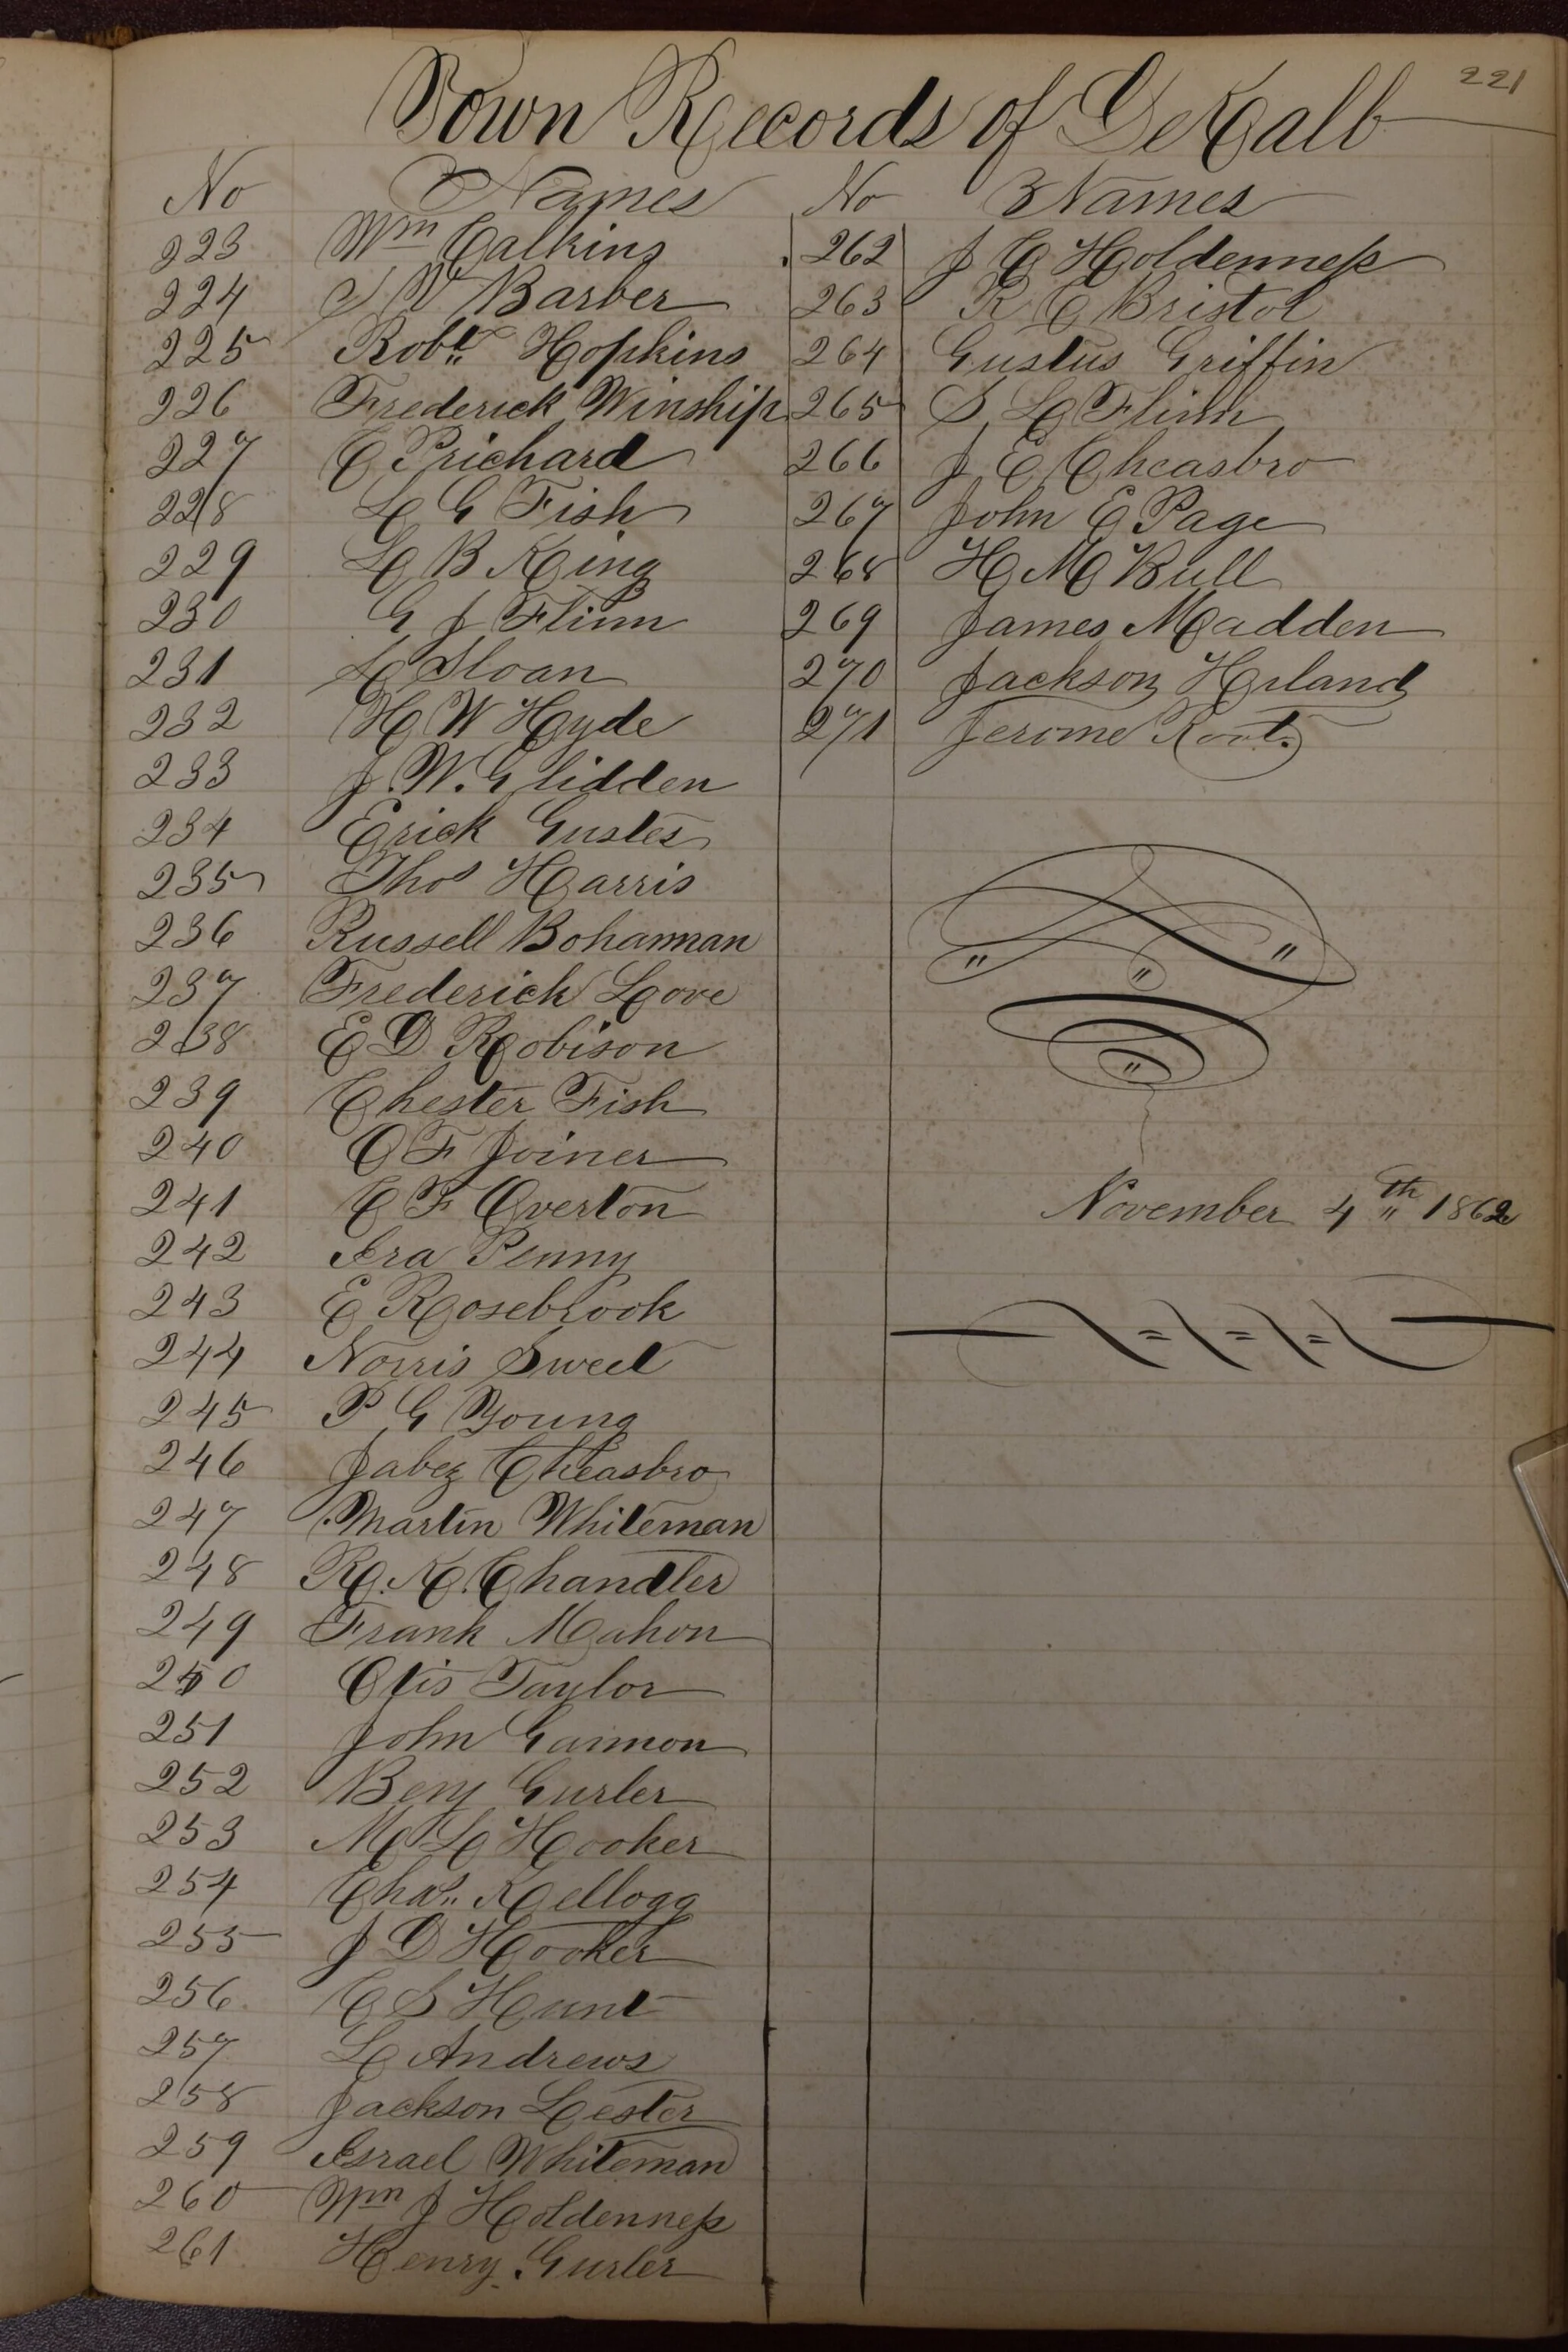 221
Town Records of DeKalb
No Names
223 Wm Calkins
224 S W Barber
225 Robt. Hopkins
226 Frederick Winship
227 C Prichard
228 L G Fish
229 L B King
230 G J Flinn
231 L Sloan
232 H W Hyde
233 J. W. Glidden
234 Erick Gustes
235 Thos Harris
236 Russell Bohannan
237 Frederick Love
238 E D Robison
239 Chester Fish
240 O F Joiner
241 C F Overton
242 Ira Penny
243 E Rosebrook
244 Norris Sweet
245 P G Young
246 Jabez Cheasbro
247 Martin Whiteman
248 R. K. Chandler
249 Frank Mahon
250 Otis Taylor
251 John Gammon
252 Benj Gurler
253 M L Hooker
254 Chas. Kellogg
255 J D Hooker
256 C S Hunt
257 L Andrews
258 Jackson Lester
259 Israel Whiteman
260 Wm J Holdenness
261 Henry Gurler
No Names
262 J C Holdenness
263 R C Bristol
264 Gustus Griffin
265 S L Flinn
266 J E Cheasbro
267 John E Page
268 H M Bull
269 James Madden
270 Jackson Harland
271 Jerome Root.
November 4th 1862